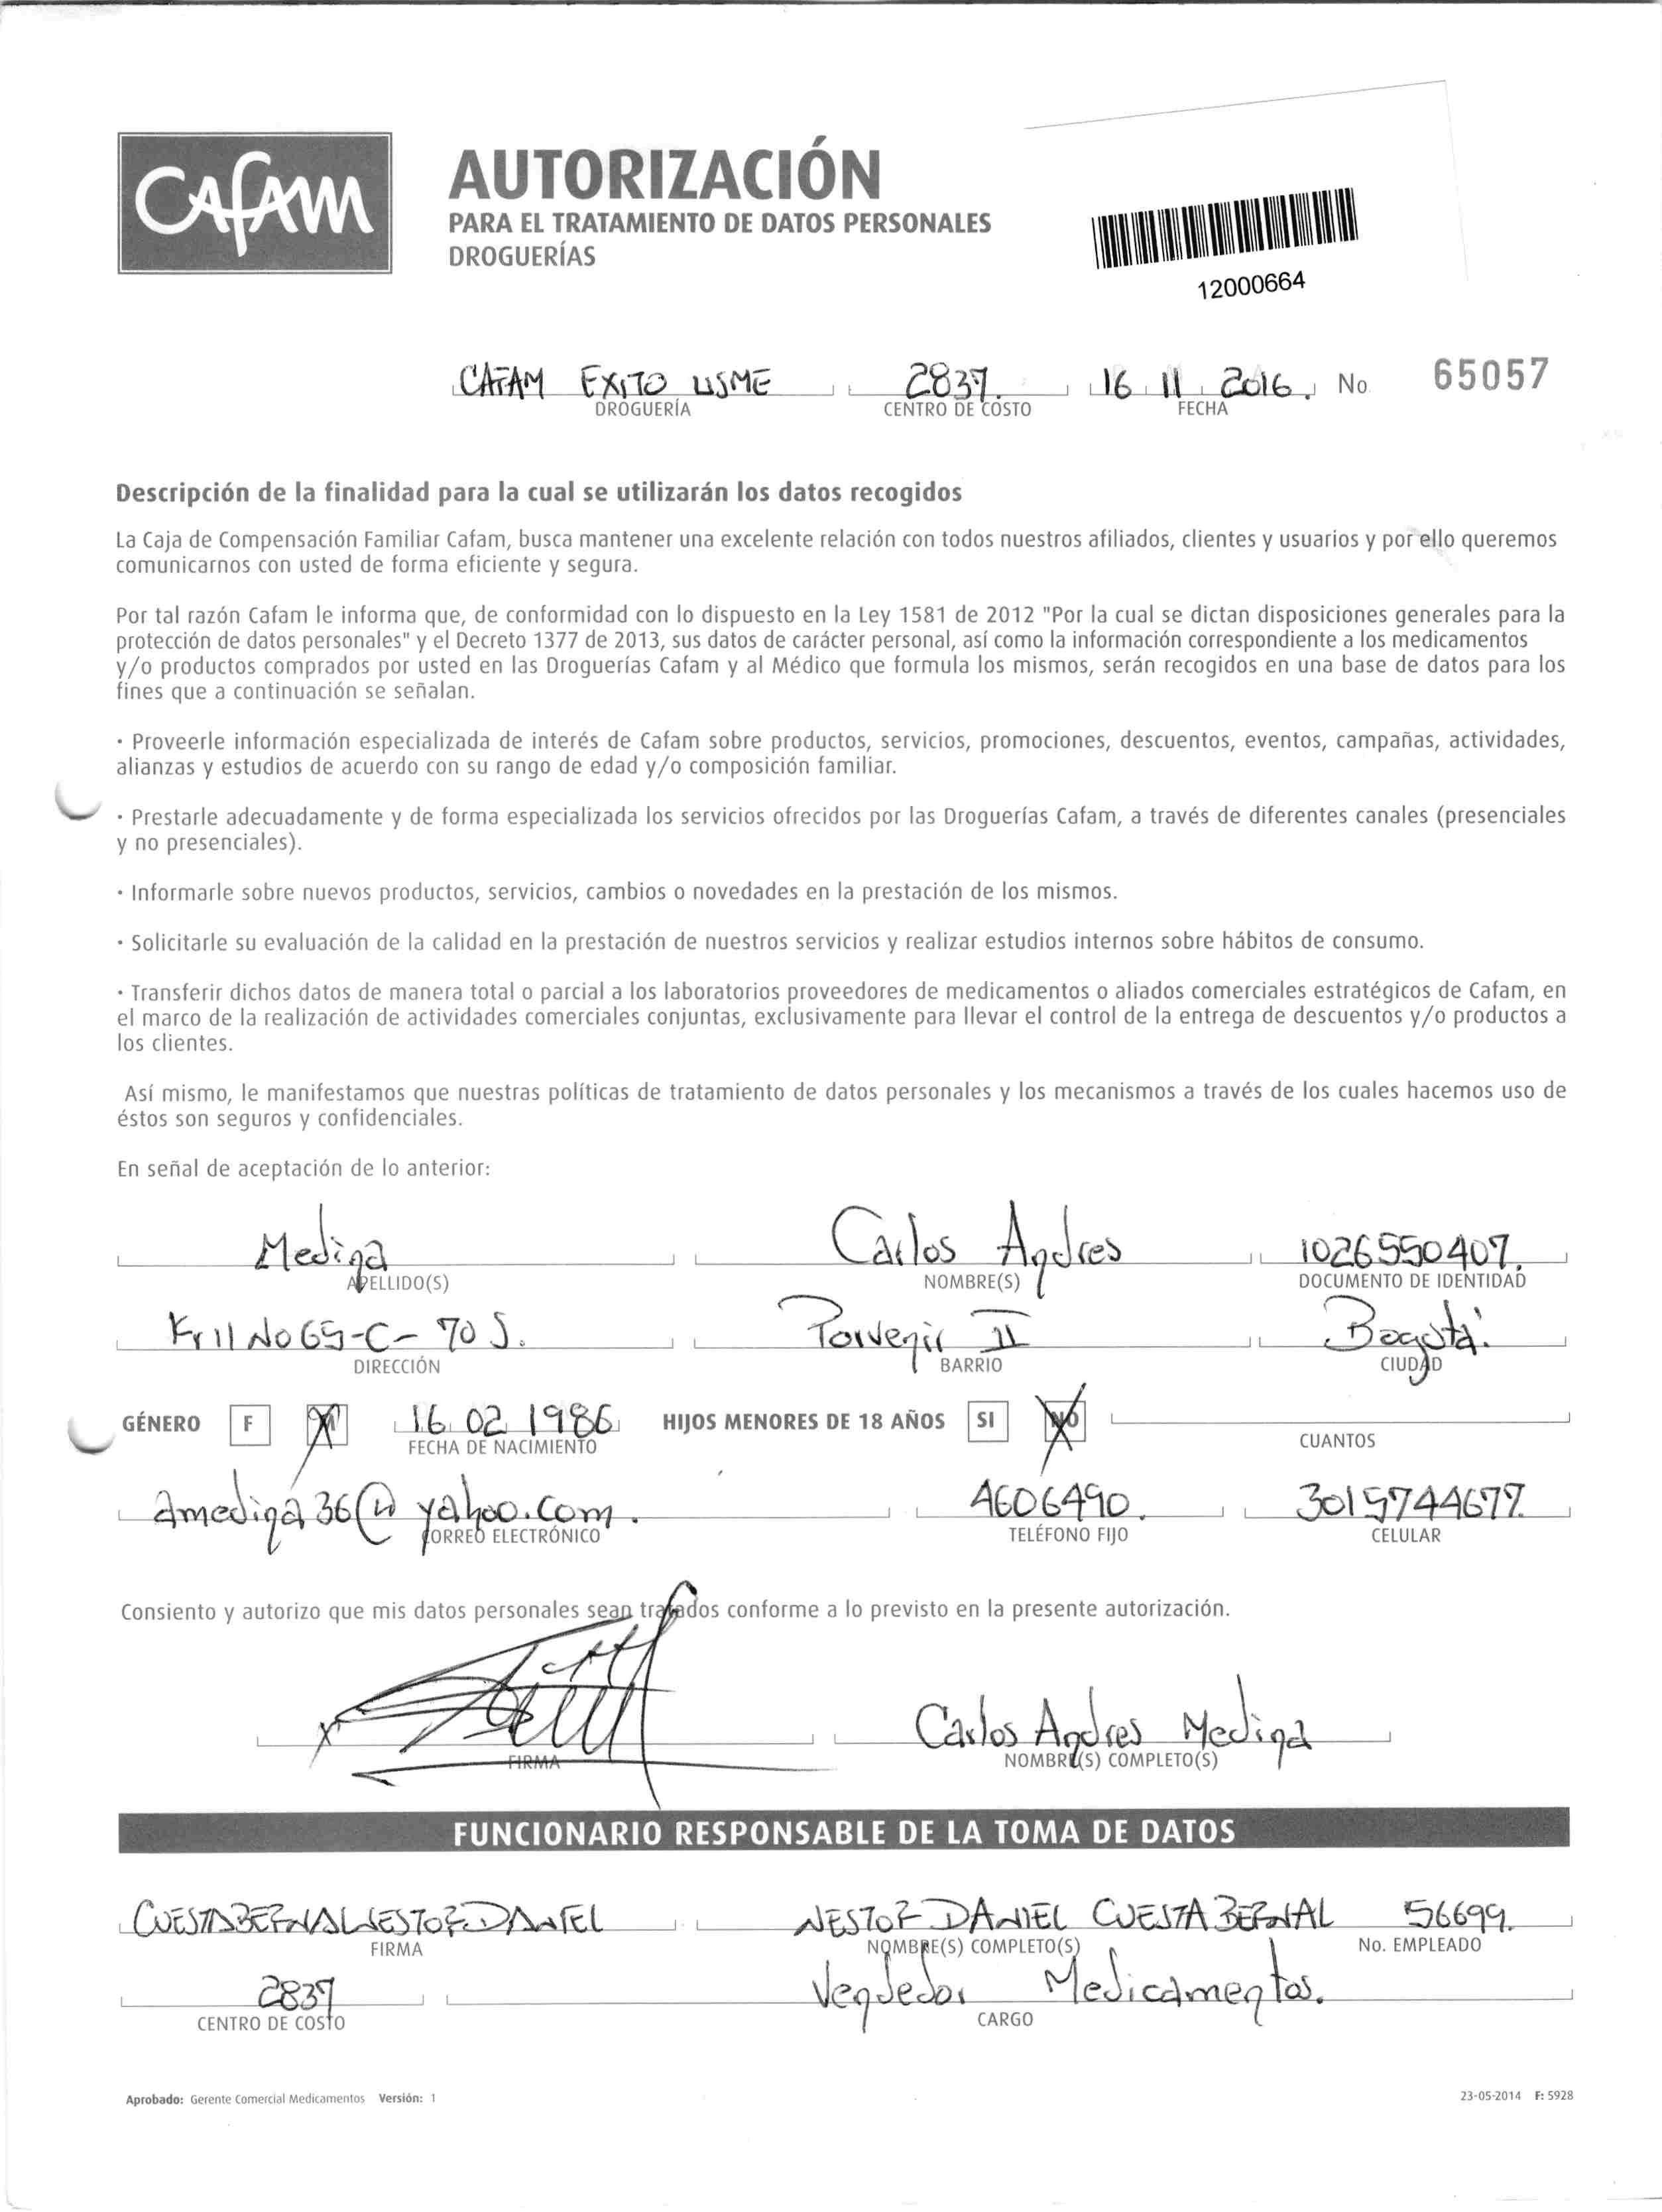 Cafam
AUTORIZACIÓN
PARA EL TRATAMIENTO DE DATOS PERSONALES
DROGUERÍAS
12000664
CAFAM EXITO USME 2837. 16 11 2016. No. 65057
DROGUERÍA CENTRO DE COSTO FECHA
Descripción de la finalidad para la cual se utilizarán los datos recogidos
La Caja de Compensación Familiar Cafam, busca mantener una excelente relación con todos nuestros afiliados, clientes y usuarios y por ello queremos
comunicarnos con usted de forma eficiente y segura.
Por tal razón Cafam le informa que, de conformidad con lo dispuesto en la Ley 1581 de 2012 "Por la cual se dictan disposiciones generales para la
protección de datos personales" y el Decreto 1377 de 2013, sus datos de carácter personal, así como la información correspondiente a los medicamentos
y/o productos comprados por usted en las Droguerías Cafam y al Médico que formula los mismos, serán recogidos en una base de datos para los
fines que a continuación se señalan.
· Proveerle información especializada de interés de Cafam sobre productos, servicios, promociones, descuentos, eventos, campañas, actividades,
alianzas y estudios de acuerdo con su rango de edad y/o composición familiar.
· Prestarle adecuadamente y de forma especializada los servicios ofrecidos por las Droguerías Cafam, a través de diferentes canales (presenciales
y no presenciales).
· Informarle sobre nuevos productos, servicios, cambios o novedades en la prestación de los mismos.
· Solicitarle su evaluación de la calidad en la prestación de nuestros servicios y realizar estudios internos sobre hábitos de consumo.
· Transferir dichos datos de manera total o parcial a los laboratorios proveedores de medicamentos o aliados comerciales estratégicos de Cafam, en
el marco de la realización de actividades comerciales conjuntas, exclusivamente para llevar el control de la entrega de descuentos y/o productos a
los clientes.
Así mismo, le manifestamos que nuestras políticas de tratamiento de datos personales y los mecanismos a través de los cuales hacemos uso de
éstos son seguros y confidenciales.
En señal de aceptación de lo anterior:
Medina Carlos Andres 1026550407.
APELLIDO(S) NOMBRE(S) DOCUMENTO DE IDENTIDAD
Kr 11 No 65-C- 70 S. Porvenir II Bogotá.
DIRECCIÓN BARRIO CIUDAD
GÉNERO F M 16 02 1986 HIJOS MENORES DE 18 AÑOS SI NO
FECHA DE NACIMIENTO CUANTOS
amedina36@yahoo.com. 4606490. 3015744677.
CORREO ELECTRÓNICO TELÉFONO FIJO CELULAR
Consiento y autorizo que mis datos personales sean tratados conforme a lo previsto en la presente autorización.
Carlos Andres Medina
FIRMA NOMBRE(S) COMPLETO(S)
FUNCIONARIO RESPONSABLE DE LA TOMA DE DATOS
CUESTA BERNAL NESTOR DANIEL NESTOR DANIEL CUESTA BERNAL 56699.
FIRMA NOMBRE(S) COMPLETO(S) No. EMPLEADO
2837 Vendedor Medicamentos.
CENTRO DE COSTO CARGO
Aprobado: Gerente Comercial Medicamentos Versión: 1 23-05-2014 F: 5928